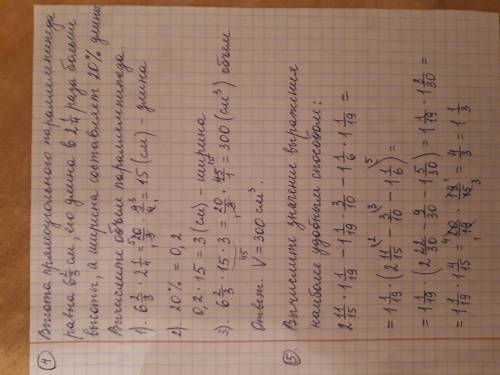 ④ Высота прямоугольного параллелепипеда
равна 6 2/3 см, его длина в 2 1/4 раза больше
высоты, а ширина составляет 20% длины
Вычислите объем параллелепипеда.
1). 6 2/3 · 2 1/4 = 20/3 · 9/4 = 15 (см) – длина
2). 20% = 0,2
0,2 · 15 = 3 (см) – ширина
3). 6 2/3 · 15 · 3 = 20/3 · 45/1 = 300 (см³) объем
45
Ответ. V = 300 см³.
⑤. Вычислите значение выражения
наиболее удобным способом:
2 11/15 · 1 1/19 – 1 1/19 · 3/10 – 1 1/6 · 1 1/19 =
= 1 1/19 · (2 11/15 – 3/10 – 1 1/6) =
= 1 1/19 · (2 22/30 – 9/30 – 1 5/30) = 1 1/19 · 1 8/30 =
= 1 1/19 · 1 4/15 = 20/19 · 19/15 = 4/3 = 1 1/3